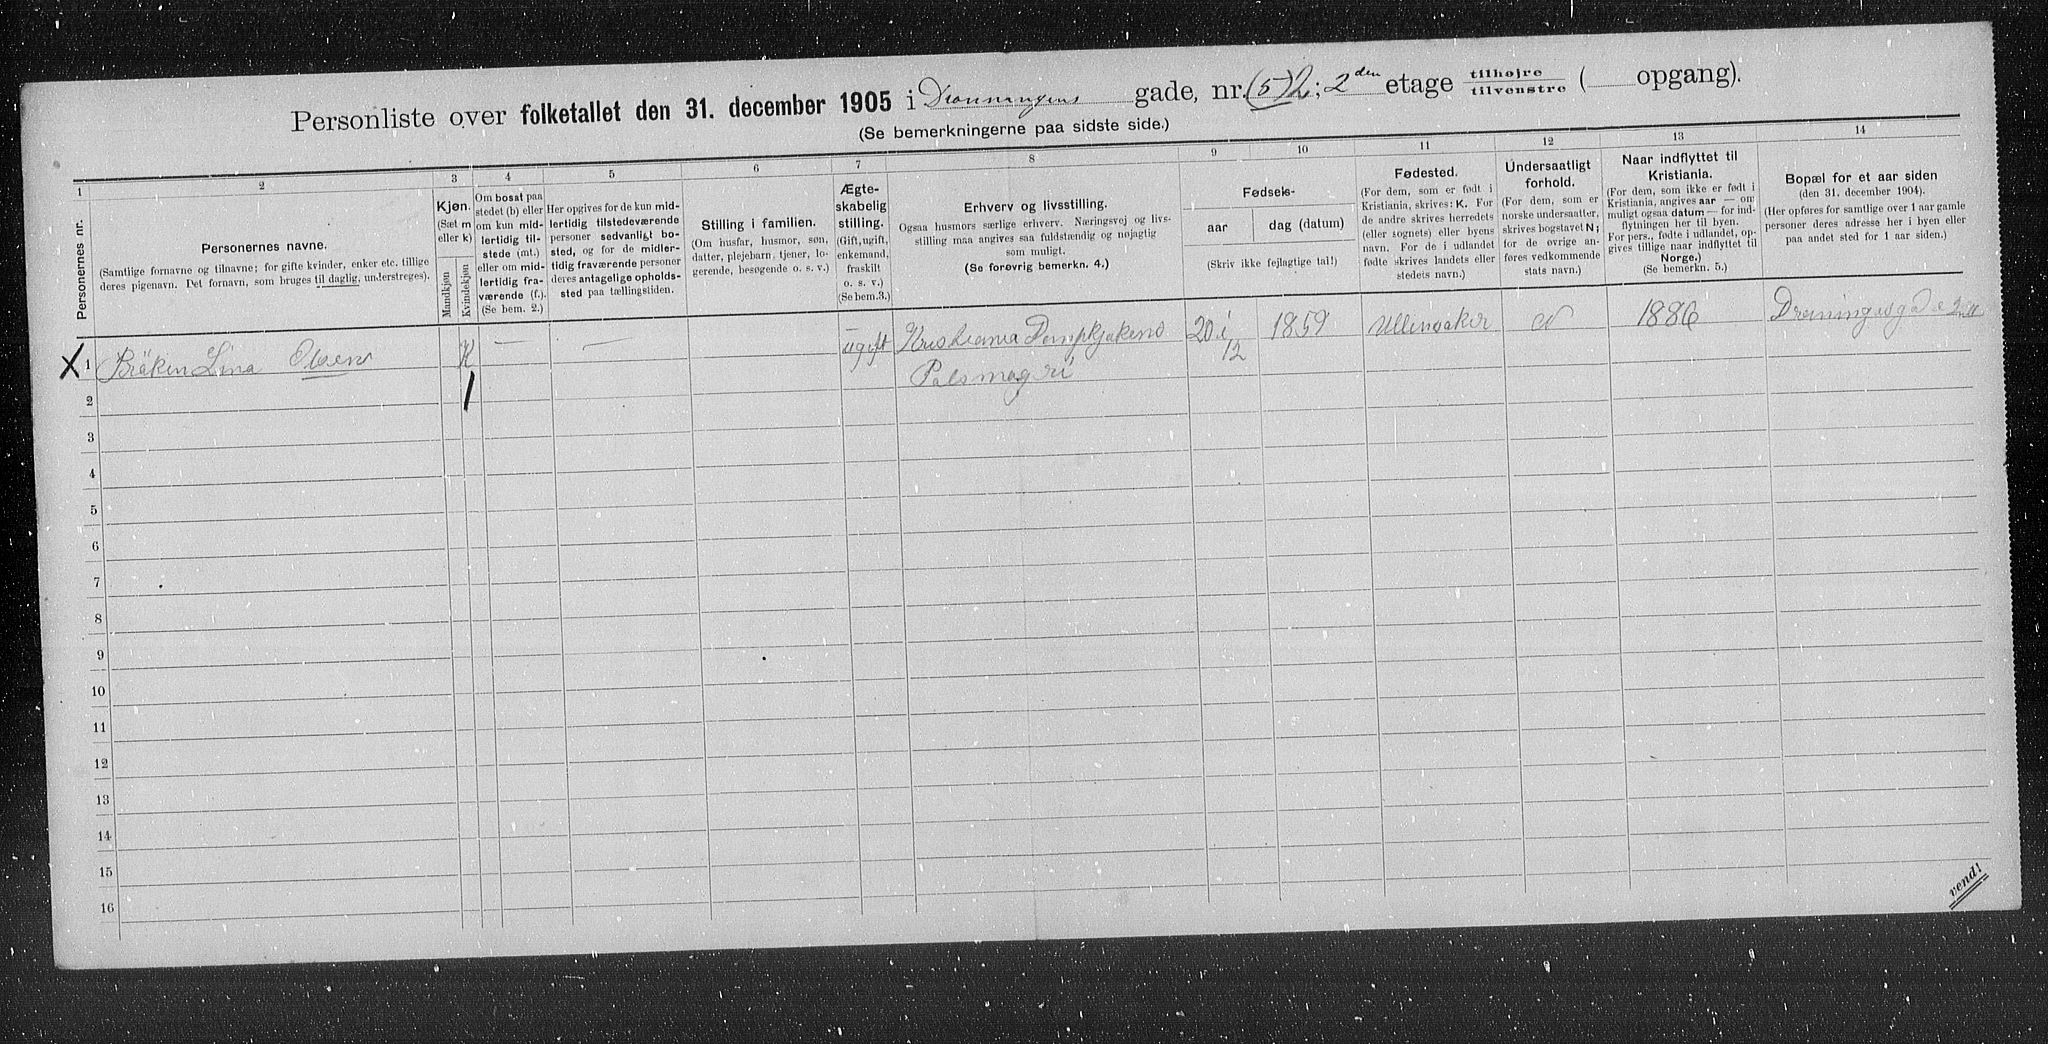 Personliste over folketallet den 31. december 1905 i Dronningens gade, nr. (5) 2; 2 den etage tilhøjre tilvenstre ( opgang).
(Se bemerkningerne paa sidste side.)
1 2 3 4 5 6 7 8 9 10 11 12 13 14
Personernes nr.
Personernes navne.
(Samtlige fornavne og tilnavne; for gifte kvinder, enker etc. tillige
deres pigenavn. Det fornavn, som bruges til daglig, understreges).
Kjøn.
(Sæt m
eller k)
Mandkjøn
Kvindekjøn
Om bosat paa
stedet (b) eller
om kun mid-
lertidig til-
stede (mt.)
eller om mid-
lertidig fra-
værende (f.).
(Se bem. 2.)
Her opgives for de kun mid-
lertidig tilstedeværende
personer sedvanligt bo-
sted, og for de midler-
tidig fraværende personer
deres antagelige opholds-
sted paa tællingstiden.
Stilling i familien.
(Om husfar, husmor, søn,
datter, plejebarn, tjener, lo-
gerende, besøgende o. s. v.)
Ægte-
skabelig
stilling.
(Gift, ugift,
enkemand,
fraskilt
o. s. v.)
(Se bem.3.)
Erhverv og livsstilling.
Ogsaa husmors særlige erhverv. Næringsvej og livs-
stilling maa angives saa fuldstændig og nøjagtig
som muligt.
(Se forøvrig bemerkn. 4.)
Fødsels-
aar
dag (datum)
(Skriv ikke fejlagtige tal!)
Fødested.
(For dem, som er født i
Kristiania, skrives: K. For
de andre skrives herredets
(eller sognets) eller byens
navn. For de i udlandet
fødte skrives landets eller
stedets navn.)
Undersaatligt
forhold.
(For dem, som er
norske undersaatter,
skrives bogstavet N;
for de øvrige an-
føres vedkommende
stats navn.)
Naar indflyttet til
Kristiania.
(For dem, som ikke er født i
Kristiania, angives aar — om
muligt ogsaa datum — for ind-
flytningen her til byen.
For pers., fødte i udlandet, op-
gives tillige naar indflyttet til
Norge.)
(Se bemerkn. 5.)
Bopæl for et aar siden
(den 31. december 1904).
(Her opføres for samtlige over 1 aar gamle
personer deres adresse her i byen eller
paa andet sted for 1 aar siden.)
X 1 Bråken Lina Olsen K — — ugift Kristiania Dampkjøkens 20 i 12 1859 Ullensaker N 1886
Pølsmageri
1
2
3
4
5
6
7
8
9
10
11
12
13
14
15
16
vend!